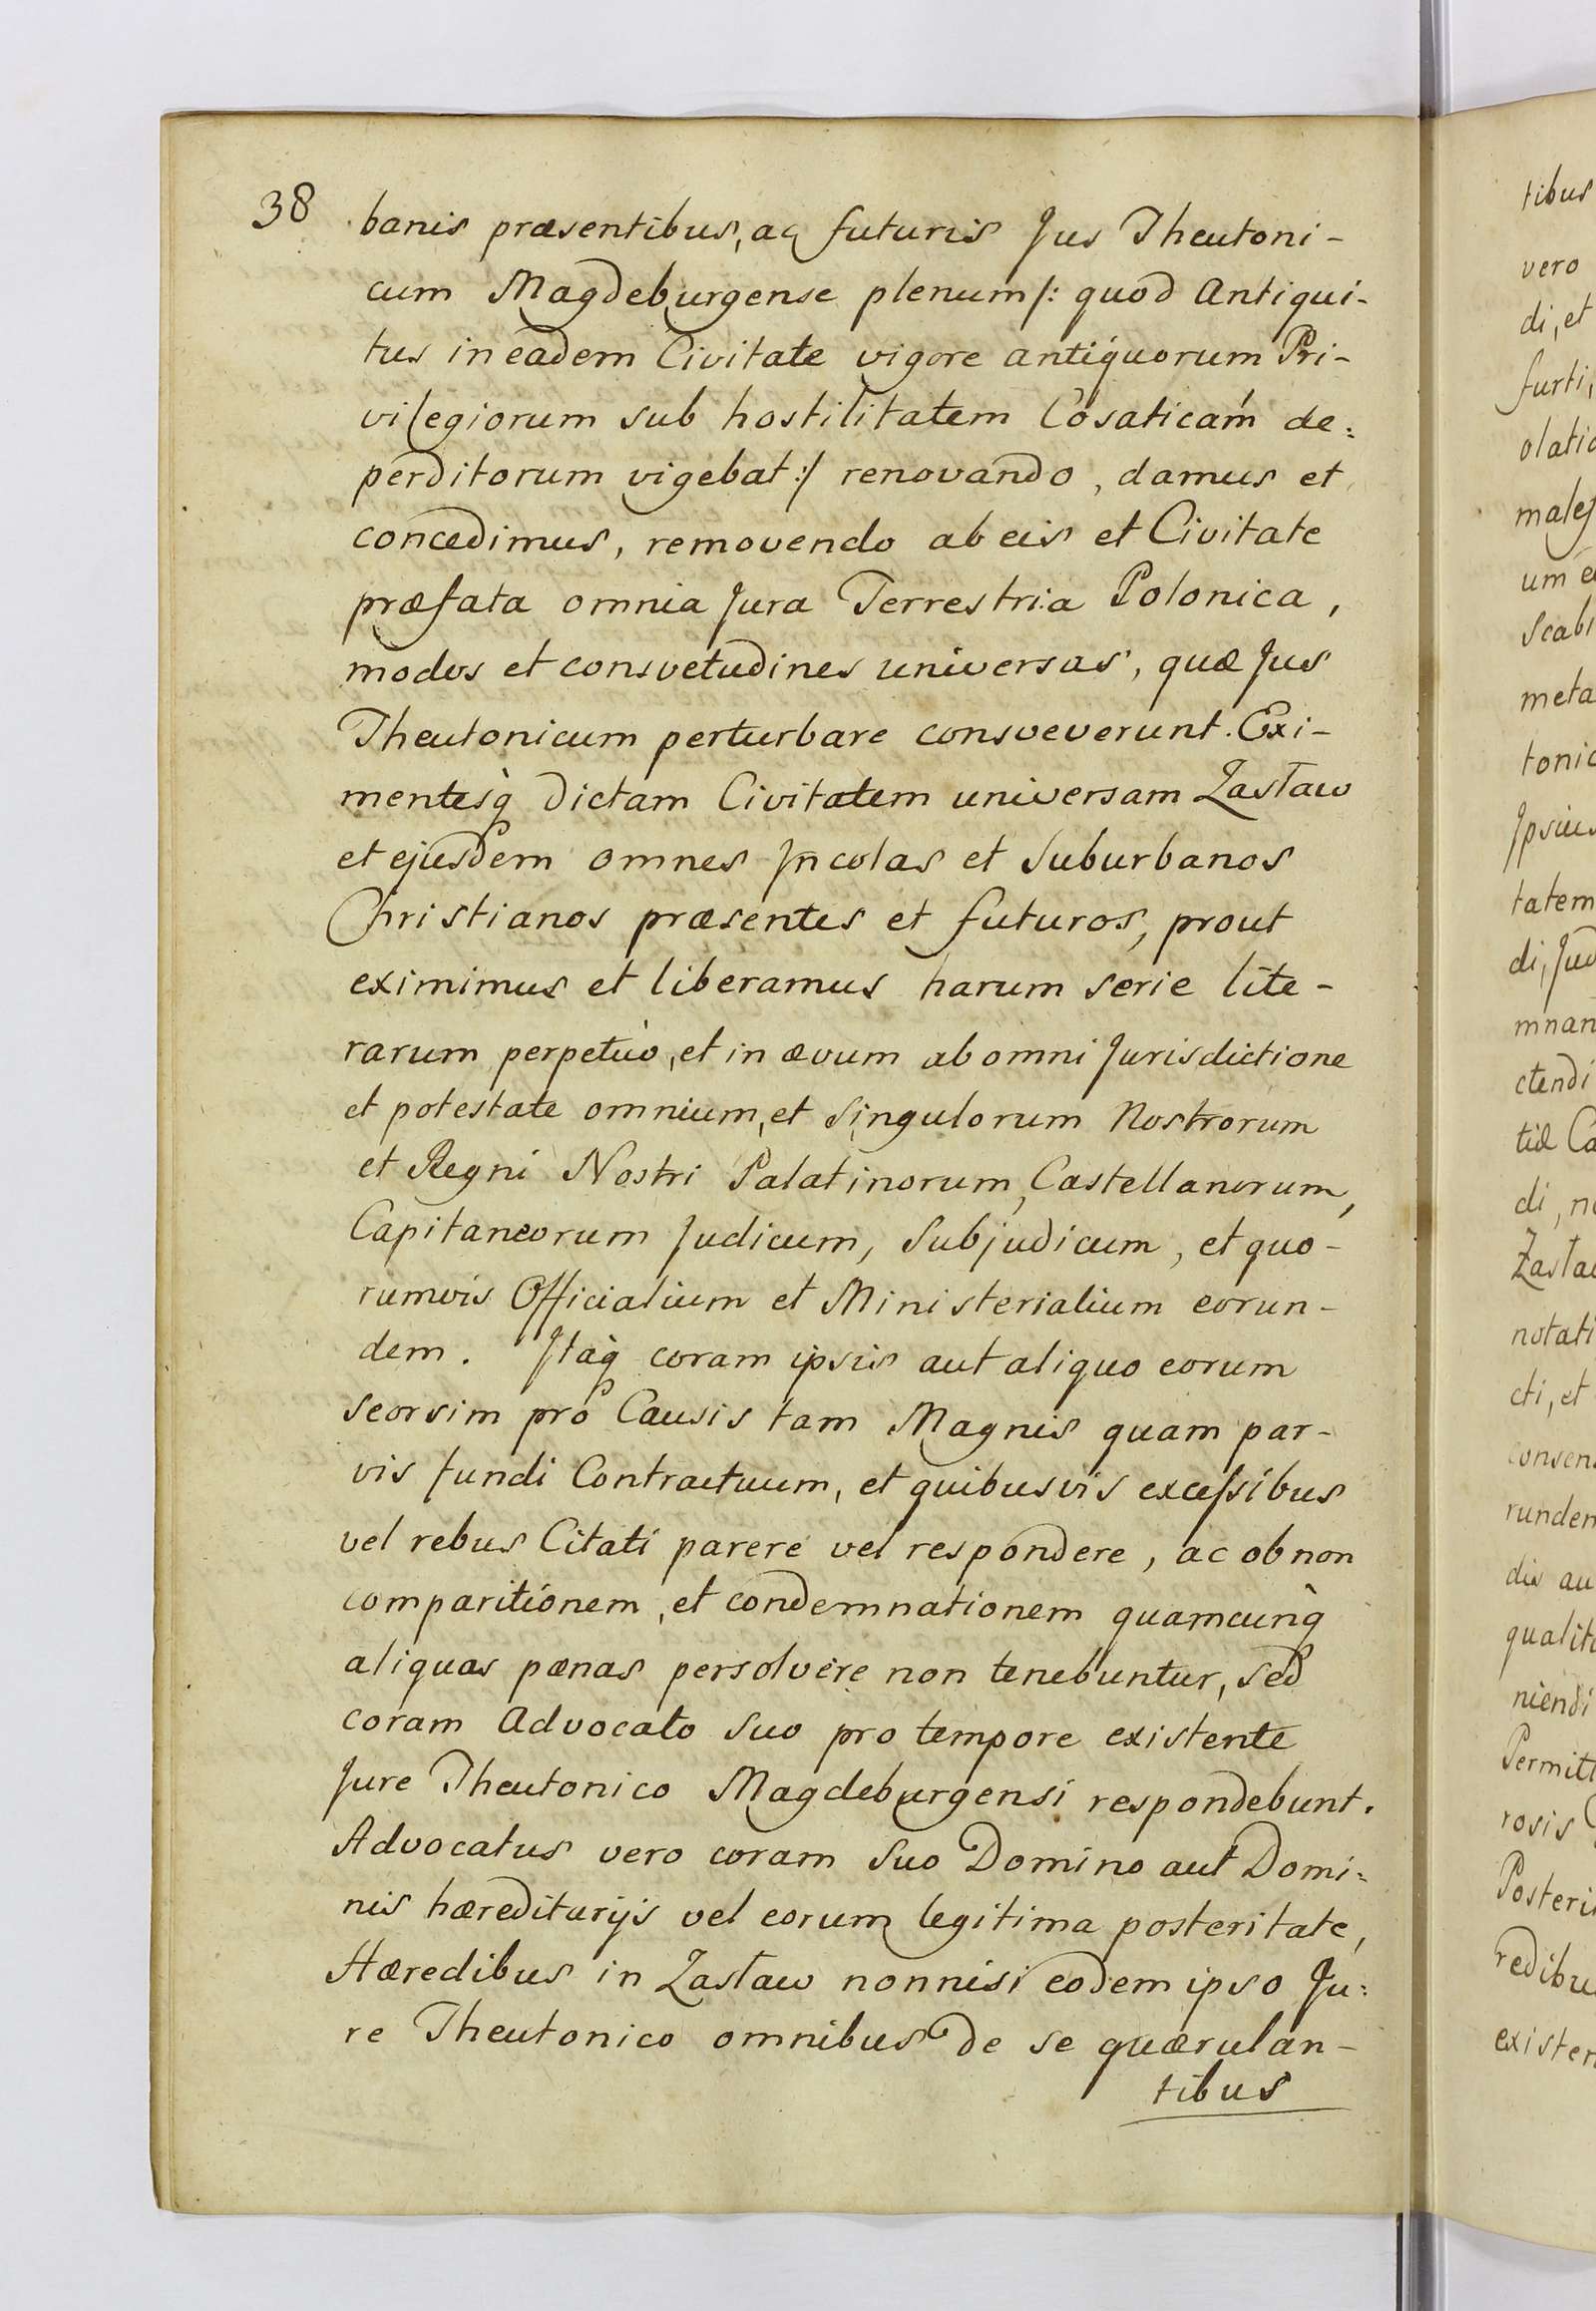 38
banis præsentibus, ac futuris Jus Theutoni-
cum Magdeburgense plenum /: quod Antiqui-
tus in eadem Civitate vigore antiquorum Pri-
vilegiorum sub hostilitatem Cosaticam de=
perditorum vigebat :/ renovando, damus et
concedimus, removendo ab eis et Civitate
præfata omnia Jura Terrestria Polonica,
modos et consvetudines universas, quæ Jus
Theutonicum perturbare consveverunt. Exi-
mentesq̀ dictam Civitatem universam Zastaw
et ejusdem omnes Jncolas et Suburbanos
Christianos præsentes et futuros, prout
eximimus et liberamus harum serie lite-
rarum perpetuò, et in ævum ab omni Jurisdictione
et potestate omnium, et Singulorum Nostrorum
et Regni Nostri Palatinorum, Castellanorum,
Capitaneorum Judicum, Subjudicum, et quo-
rumvis Officialium et Ministerialium eorun-
dem. Jtaq̀ coram ipsis aut aliquo eorum
seorsim pro Causis tam Magnis quam par-
vis fundi Contractuum, et quibusvis excessibus
vel rebus Citati parere vel respondere, ac ob non
comparitionem, et condemnationem quamcunq̀
aliquas pænas persolvere non tenebuntur, sed
coram Advocato suo pro tempore existente
Jure Theutonico Magdeburgensi respondebunt.
Advocatus vero coram Suo Domino aut Domi=
nis hæreditarijs vel eorum legitima posteritate,
Hæredibus in Zastaw nonnisi eodem ipso Ju=
re Theutonico omnibus de se quærulan-
tibus
tibus
vero
di, et
furti,
olatio
malef
um e
Scabi
meta
tonic
Jpsius
tatem
di, Jud
mnan
ctendi
tiæ Ca
di, n
Zasta
notati
cti, et
consen
rundem
dis au
qualit
niendi
Permitt
rosis
Posteri
redibu
existen